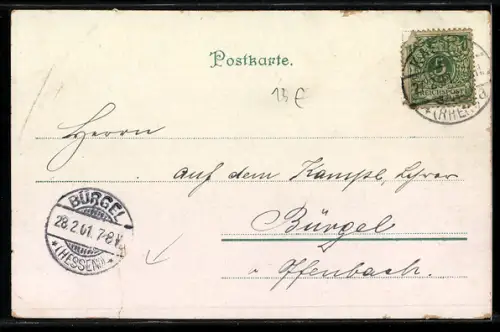 Postkarte.
5
REICHSPOST
(RHEIN)
13 €
Herrn
auf dem Kampe, Lehrer
BÜRGEL
28.2.01. 7-8 V.
(HESSEN)
Bürgel
Offenbach.